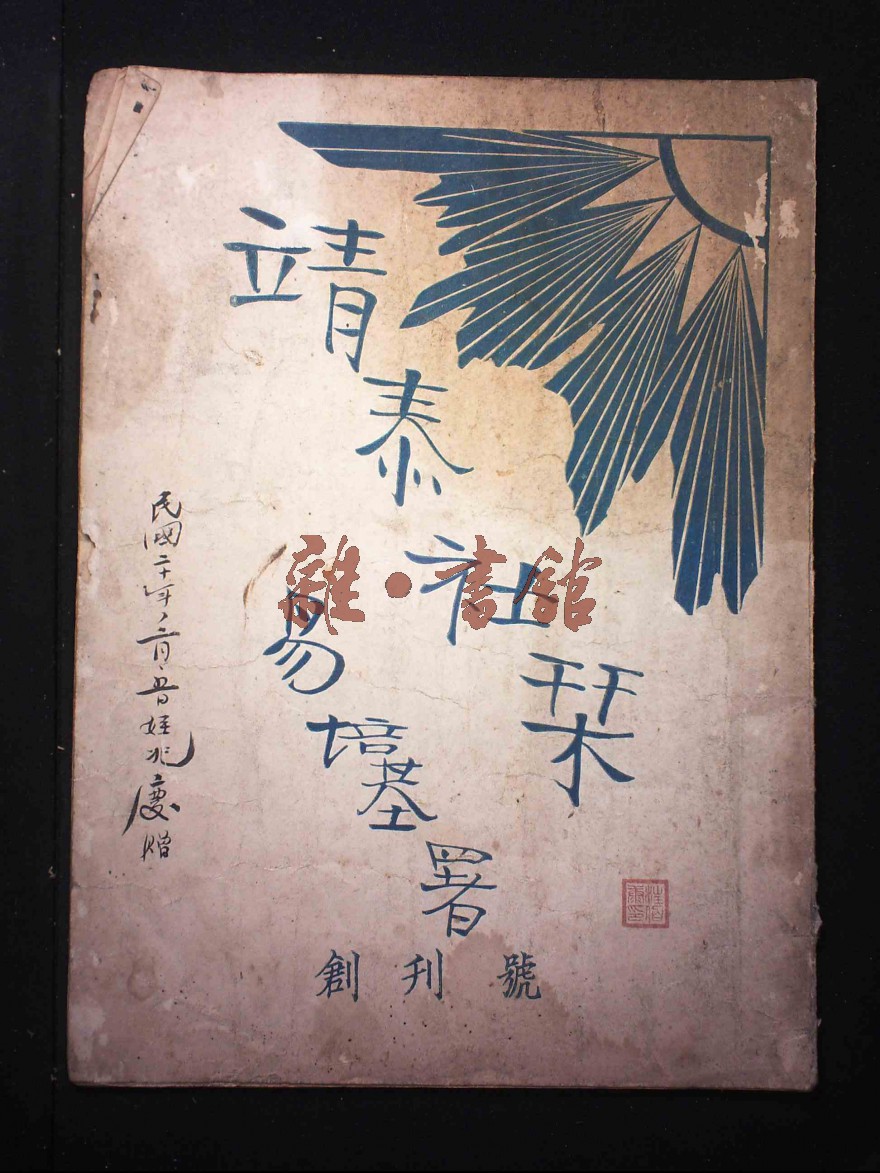 靖泰社栞
易培基署
創刊號
民國二十年 姪兆慶贈
雜·書館